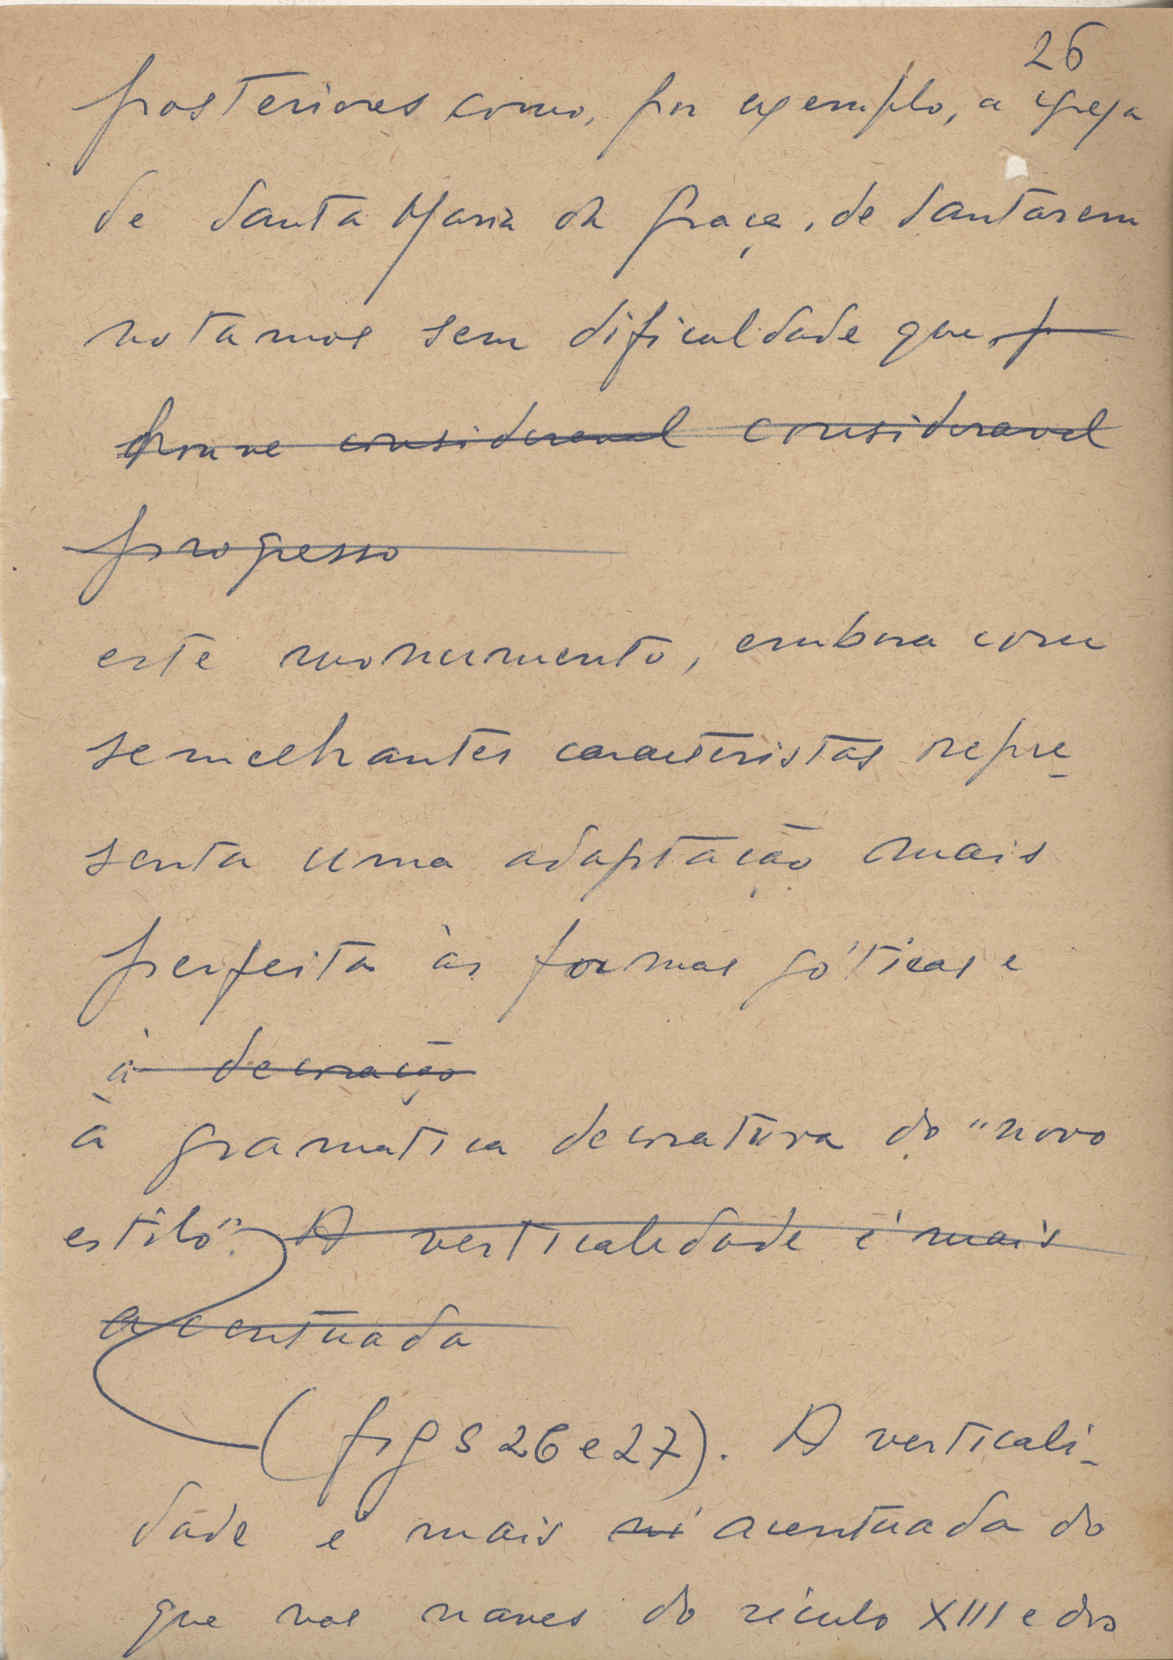 26
posteriores como, por exemplo, a igreja
de Santa Maria da Graça, de Santarem
notamos sem dificuldade que, p
houve consideravel consideravel
progesso
este monumento, embora com
semelhantes caracteristas repre-
senta uma adaptação mais
perfeita às formas góticas e
à decoração
à gramatica decorativa do "novo
estilo". A verticalidade é mais
acentuada
(figs 26 e 27). A verticali-
dade é mais acentuada do
que nas naves do século XIII e dos